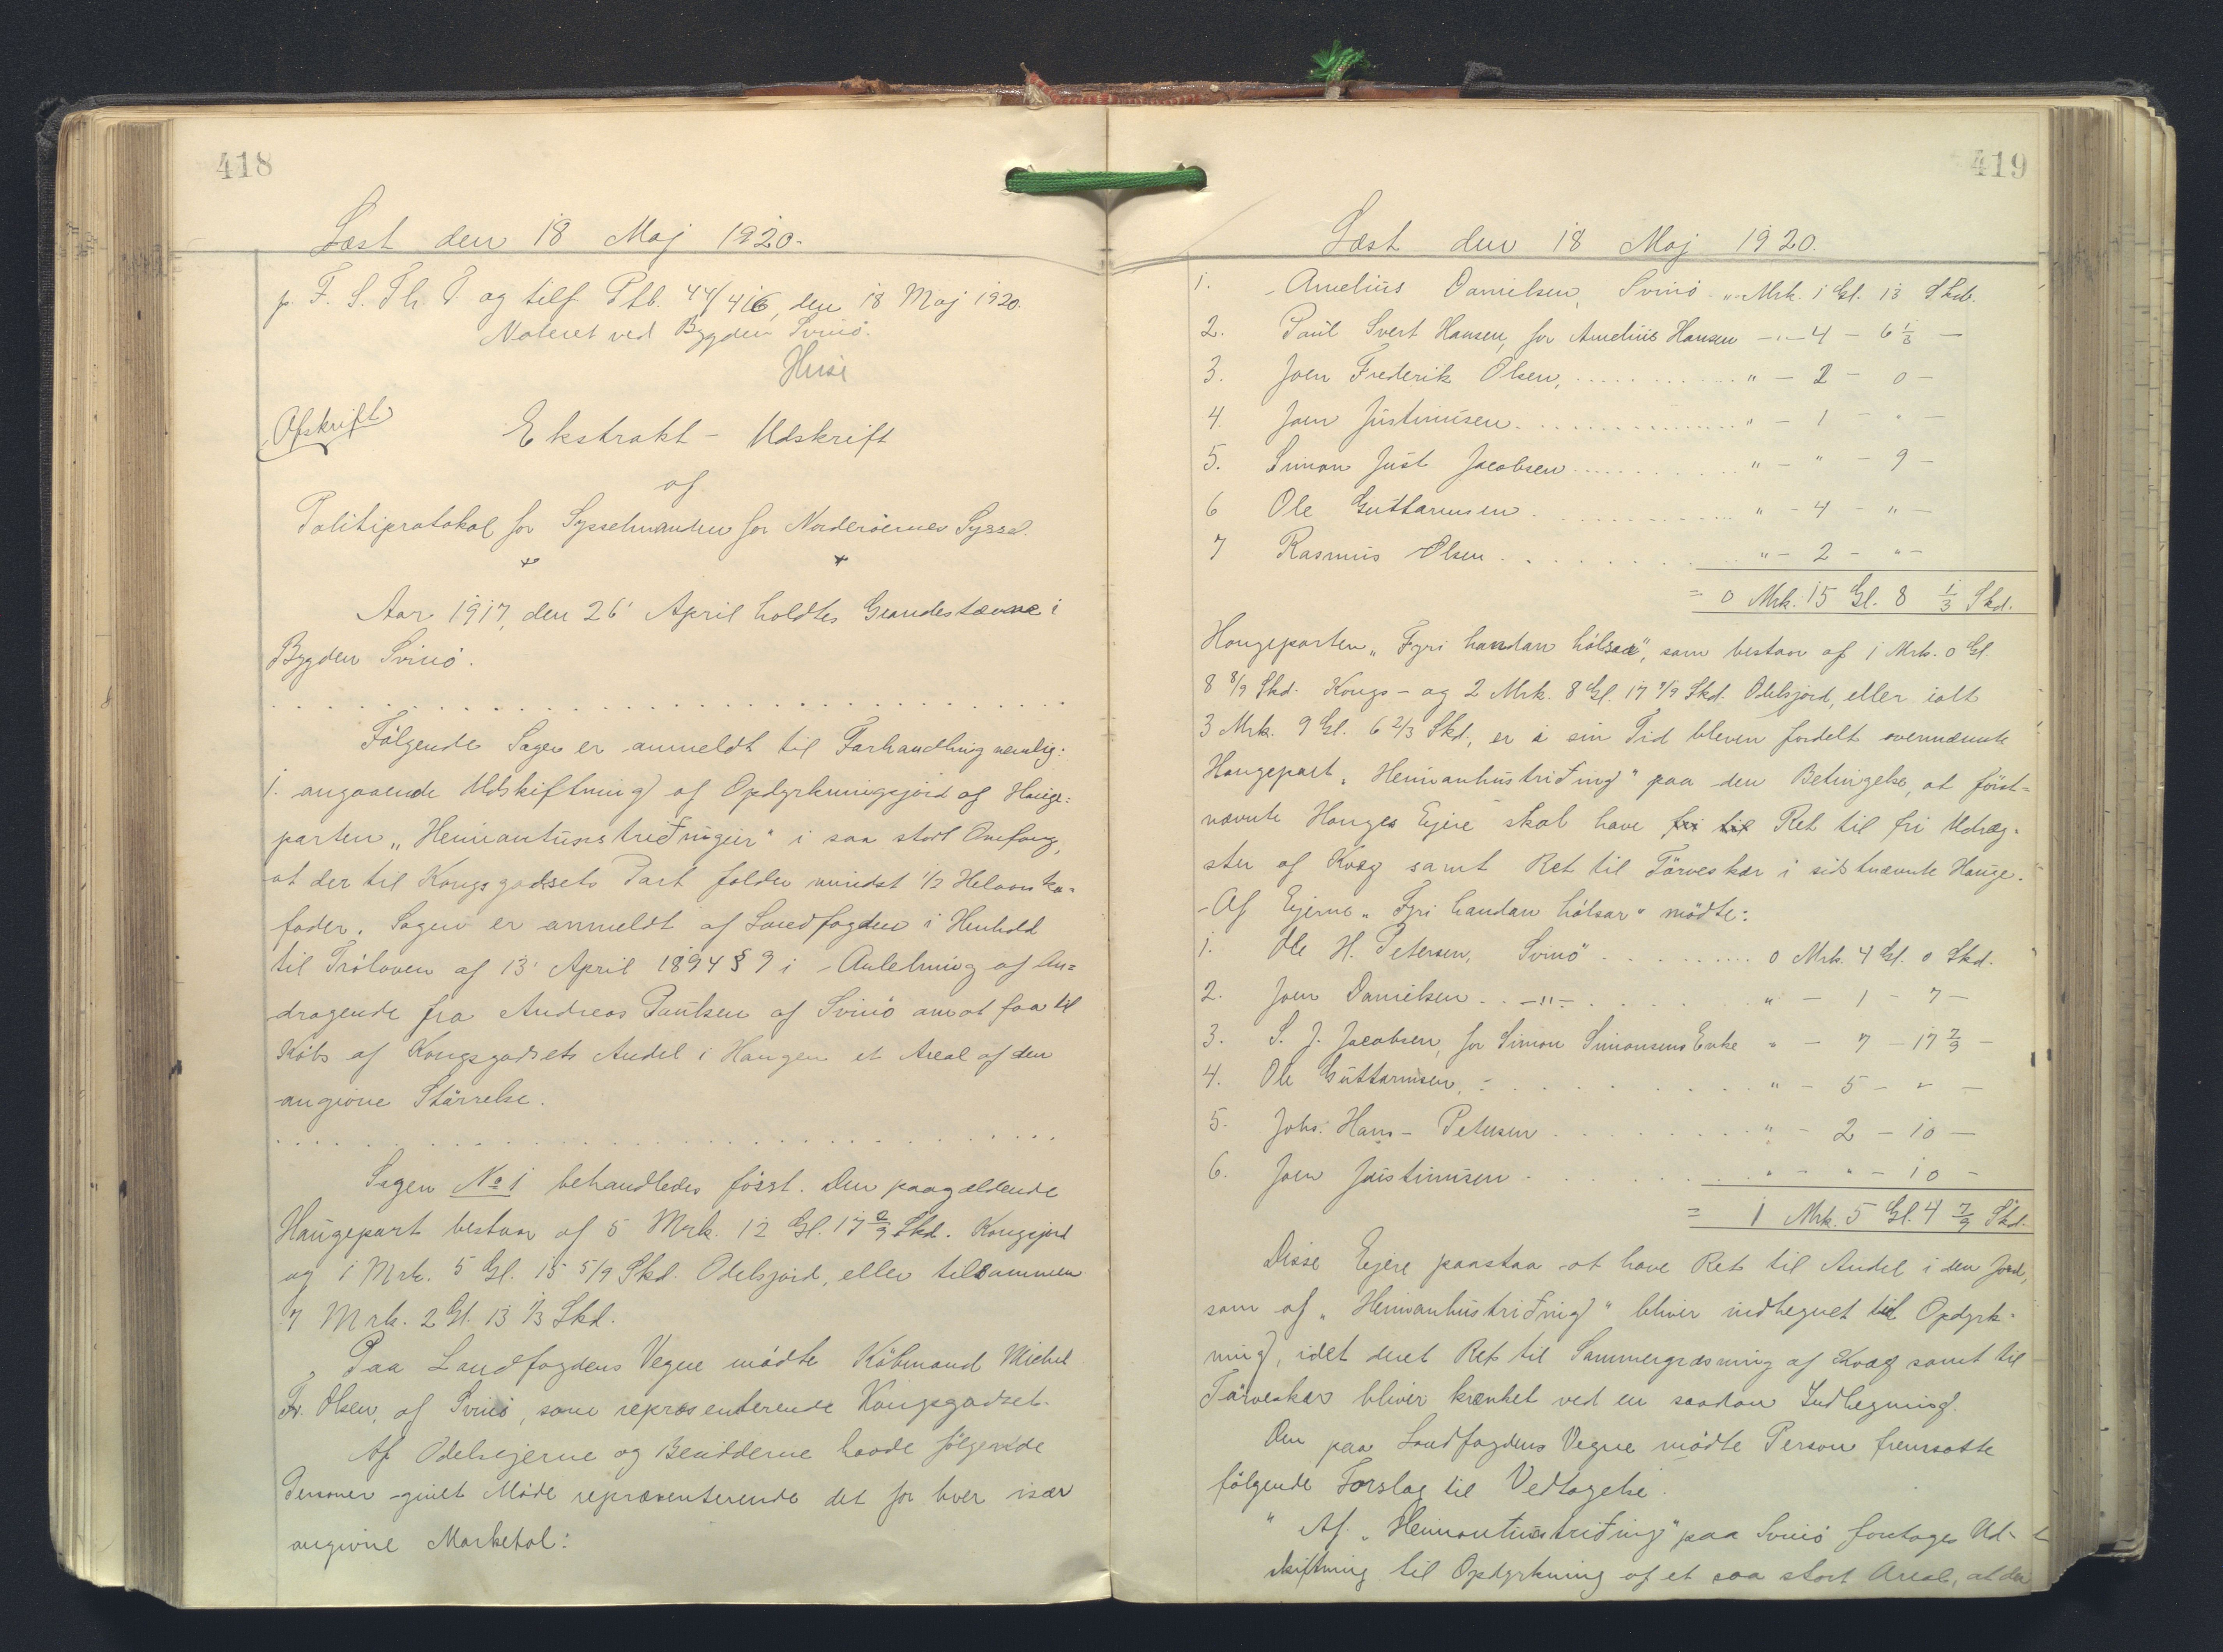 418
Læst den 18 Maj 1920.
p. F. S. Th. P. og tilf. Ptb. 44/416, den 18 Maj 1920.
Noteret ved Bygden Svinö.
Afskrift
Ekstrakt - Udskrift
af
Politiprotokol for Sysselmanden for Norderöernes Syssel.
Aar 1917, den 26' April holdtes Grandestævne i
Bygden Svinö.
Fölgende Sager er anmeldt til Forhandling nemlig:
1. angaaende Udskiftning af Opdyrkningsjord af Hauge=
parten „Heimantúnstriðingur" i saa stort Omfang,
at der til Kongsgodsets Part falder mindst 1/2 Helaars Ko=
foder. Sagen er anmeldt af Landfogden i Henhold
til Tröloven af 13' April 1894 § 9 i Anledning af An=
dragende fra Andreas Paulsen af Svinö om at faa til
Köbs af Kongsgodsets Andel i Haugen et Areal af den
angivne Störrelse.
Sagen No 1 behandledes först. Den paagældende
Haugepart bestaar af 5 Mrk. 12 Gl. 17 7/9 Skd. Kongsjord
og 1 Mrk. 5 Gl. 15 5/9 Skd. Odelsjord, eller tilsammen
7 Mrk. 2 Gl. 13 1/3 Skd.
Paa Landfogdens Vegne mödte Köbmand Michel
Fr. Olsen, af Svinö, som repræsenterende Kongsgodset.
Af Odelsejerne og Besidderne havde fölgende
Personer givet Möde repræsenterende det for hver især
angivne Marketal:
419
Læst den 18 Maj 1920.
1. Amelius Danielsen, Svinö „ Mrk. 1 Gl. 13 Skd.
2. Paul Svert Hansen, for Amelius Hansen - „ - 4 - 6 1/3 -
3. Joen Frederik Olsen, " - 2 - 0 -
4. Joen Justinusen " - 1 - " -
5. Simon Just Jacobsen " - " - 9 -
6 Ole Guttormsen " - 4 - " -
7 Rasmus Olsen " - 2 - " -
= 0 Mrk. 15 Gl. 8 1/3 Skd.
Haugeparten „Fyri handan hálsar", som bestaar af 1 Mrk. 0 Gl.
8 8/9 Skd. Kongs- og 2 Mrk. 8 Gl. 17 7/9 Skd. Odelsjord, eller ialt
3 Mrk. 9 Gl. 6 2/3 Skd., er i sin Tid bleven fordelt ovennævnte
Haugepart „Heimanhústriðing" paa den Betingelse, at först=
nævnte Hauges Ejere skal have fri til Ret til fri Udræg=
ster af Kvæg samt Ret til Törveskær i sidstnævnte Hauge.
Af Ejerne „Fyri handan hálsar" mödte:
1. Ole H. Petersen, Svinö 0 Mrk. 4 Gl. 0 Skd.
2. Joen Danielsen - " - " - 1 - 7 -
3. S. J. Jacobsen, for Simon Simonsens Enke " - 7 - 17 7/9 -
4. Ole Guttormsen " - 5 - " -
5. Johs. Hans- Petersen " - 2 - 10 -
6. Joen Justinusen " - " - 10 -
= 1 Mrk. 5 Gl. 4 7/9 Skd.
Disse Ejere paastaa at have Ret til Andel i den Jord,
som af „Heimanhústriðing" bliver indhegnet til Opdyrk=
ning, idet deres Ret til Sommergræsning af Kvæg samt til
Törveskær bliver krænket ved en saadan Indhegning.
Den paa Landfogdens Vegne mödte Person fremsatte
fölgende Forslag til Vedtagelse.
" Af „Heimantúnstriðing" paa Svinö foretages Ud-
skiftning til Opdyrkning af et saa stort Areal, at der